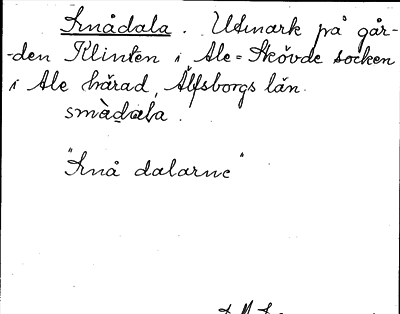 Smådala. Utmark på går-
-den Klinten i Ale-Skövde socken
i Ale härad, Älfsborgs län.
smàdala.
"Små dalarne"